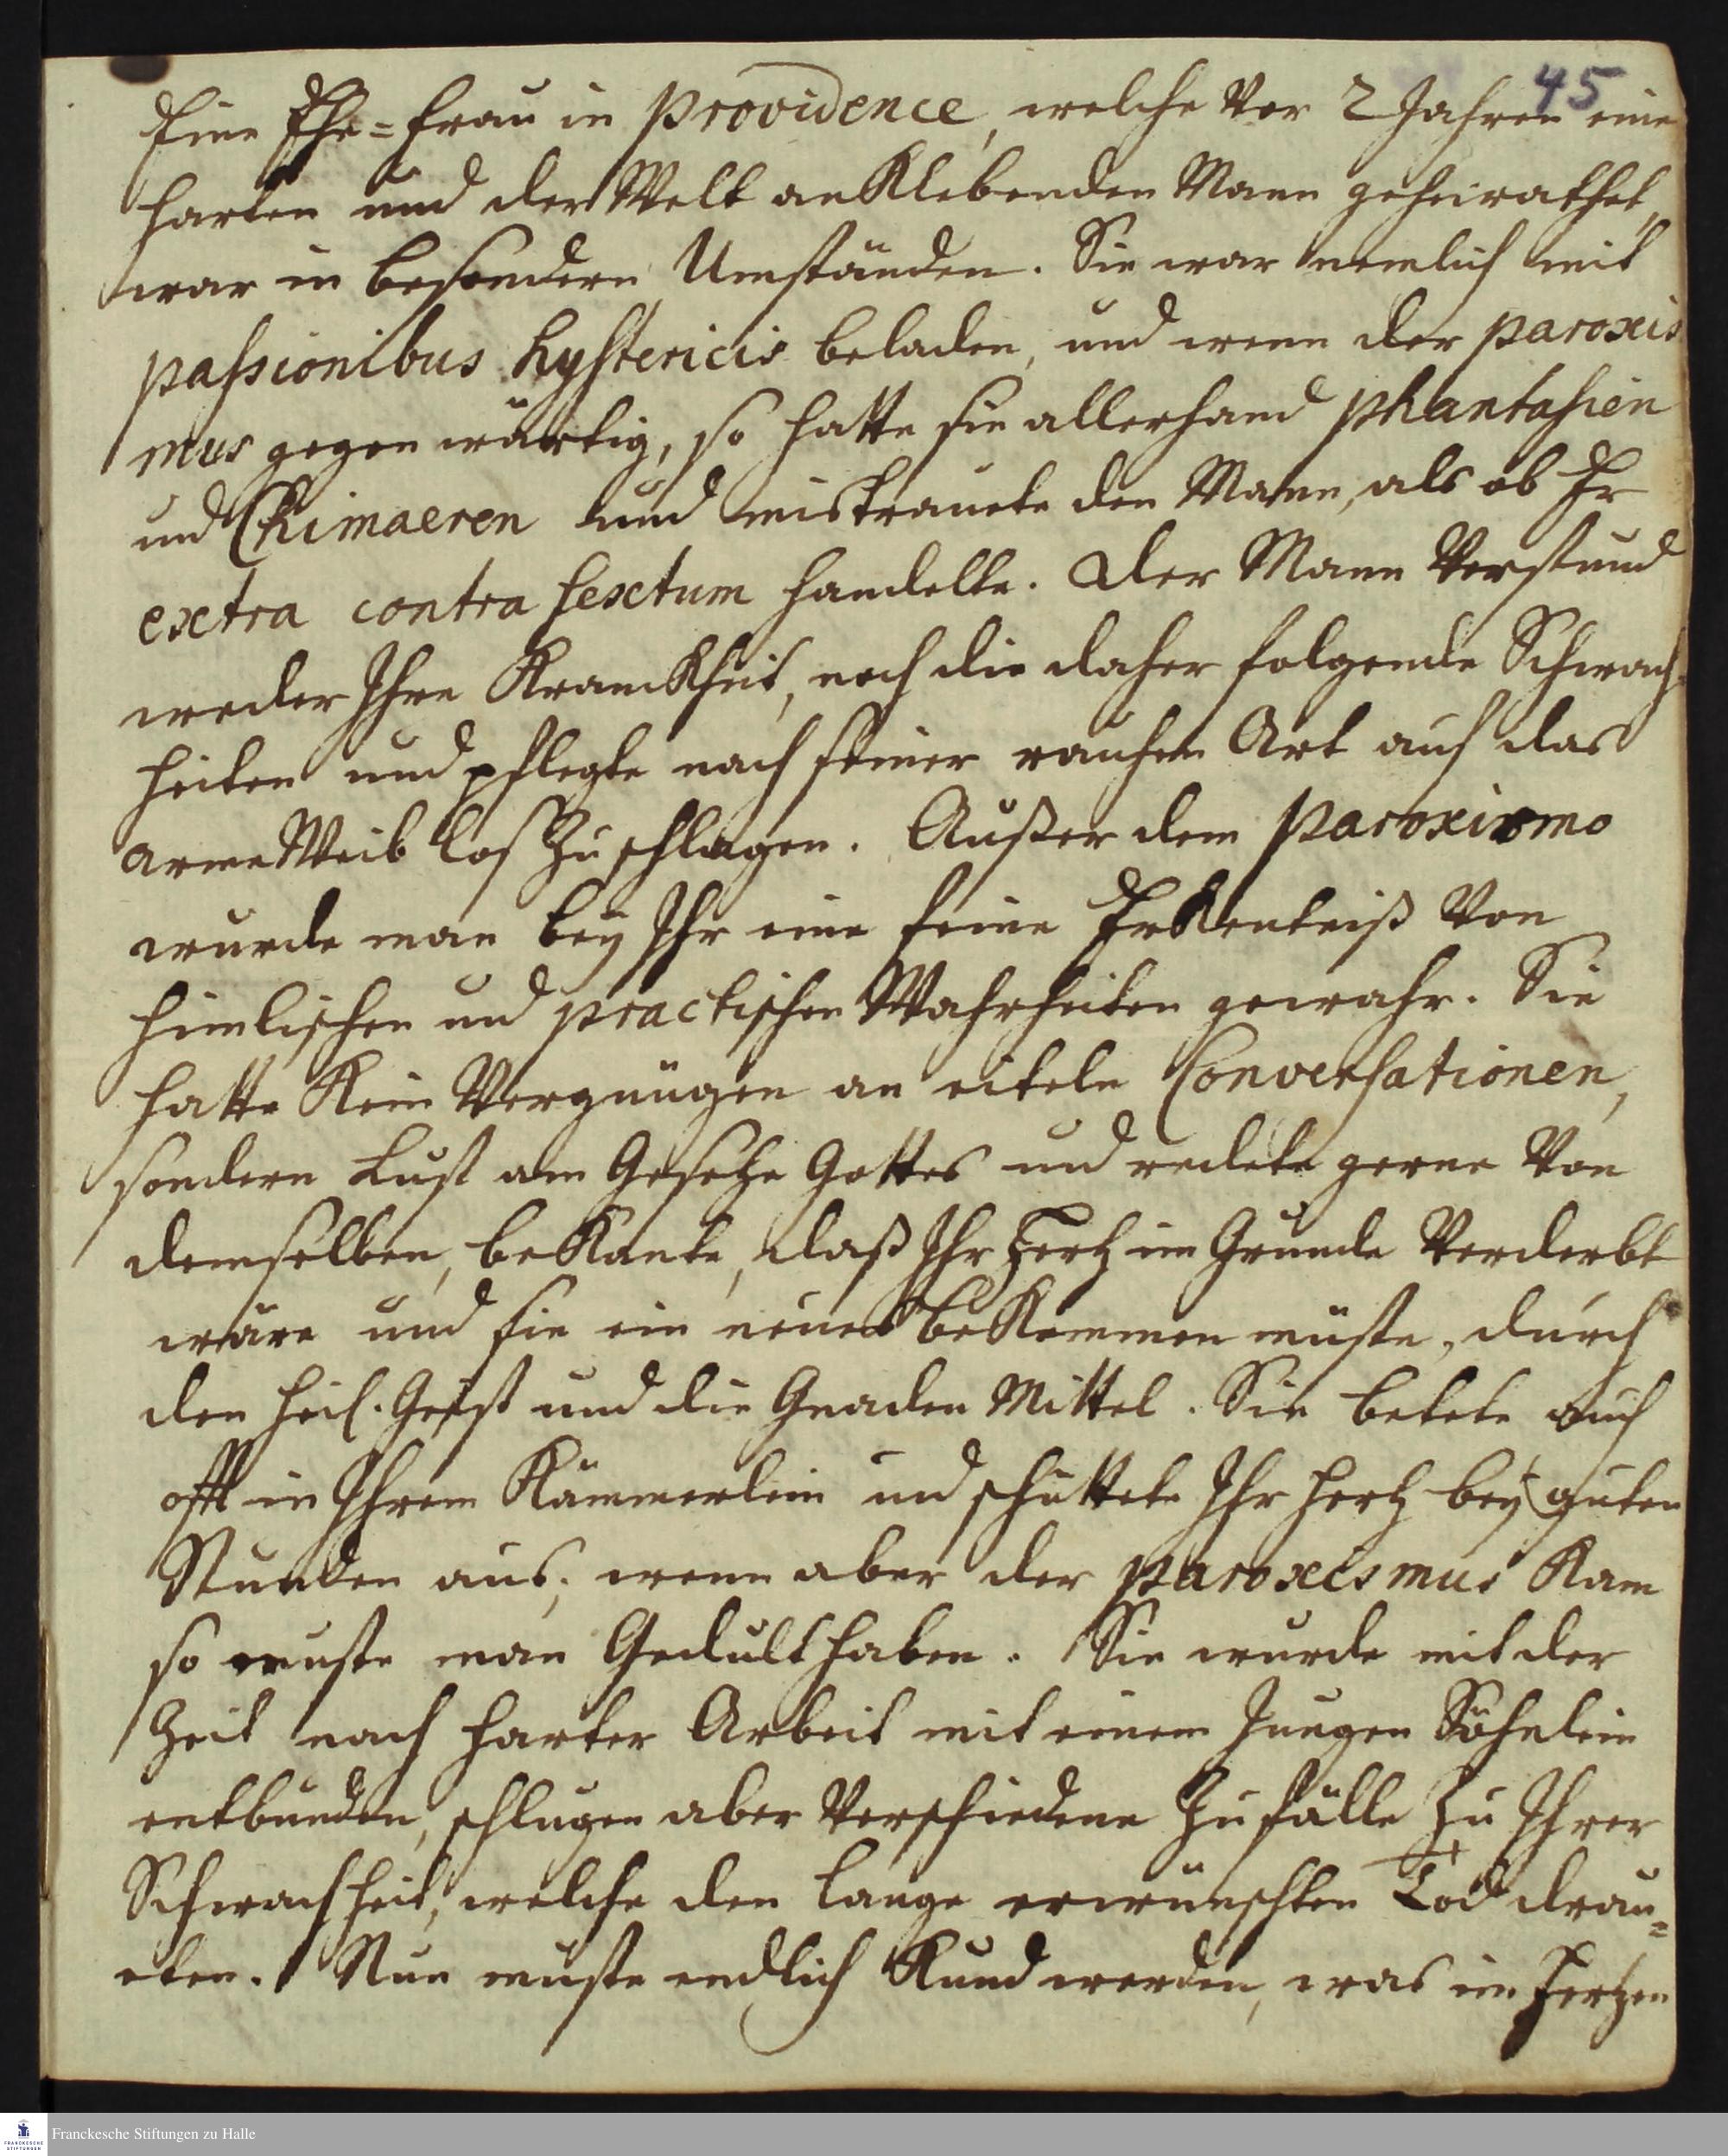 45
Eine Ehe=Frau in Providence, welche vor 2 Jahren eine
harten und der Welt anklebenden Mann geheirathet,
war in besondern Umständen. Sie war nemlich mit
passionibus hystericis beladen, und wenn der paroxis
mus gegenwärtig, so hatte sie allerhand phantasien
und Chimaeren und mistrauete den Mann, als ob Er
extra contra sextum handelte. Der Mann verstund
weder Ihre Kranckheit, noch die daher folgende Schwach=
heiten und pflegte nach seiner rauhen Art auf das
arme Weib loß zu schlagen. Außer dem Paroxismo
wurde man bey Ihr eine feine Erkentniß von
himlischen und practischen Wahrheiten gewahr. Sie
hatte kein Vergnügen an eiteln Conversationen,
sondern Lust am Gesetze Gottes und redete gerne von
demselben, bekante, daß Ihr Hertz im Grunde verderbt
wäre und sie ein neues bekommen müste, durch
den heil. Geist und die Gnaden Mittel. Sie betete auch
offt in Ihrem Kämmerlein und schüttete Ihr Hertz bey guten
Stunden aus; wenn aber der paroxismus kam
so muste man Gedult haben. Sie wurde mit der
Zeit nach harter Arbeit mit einem jungen Söhnlein
entbunden, schlugen aber verschiedene Zufälle zu Ihrer
Schwachheit, welche den lange erwünschten Tod dräu=
eten. Nun muste endlich kund werden, was im Hertzen
Franckesche Stiftungen zu Halle